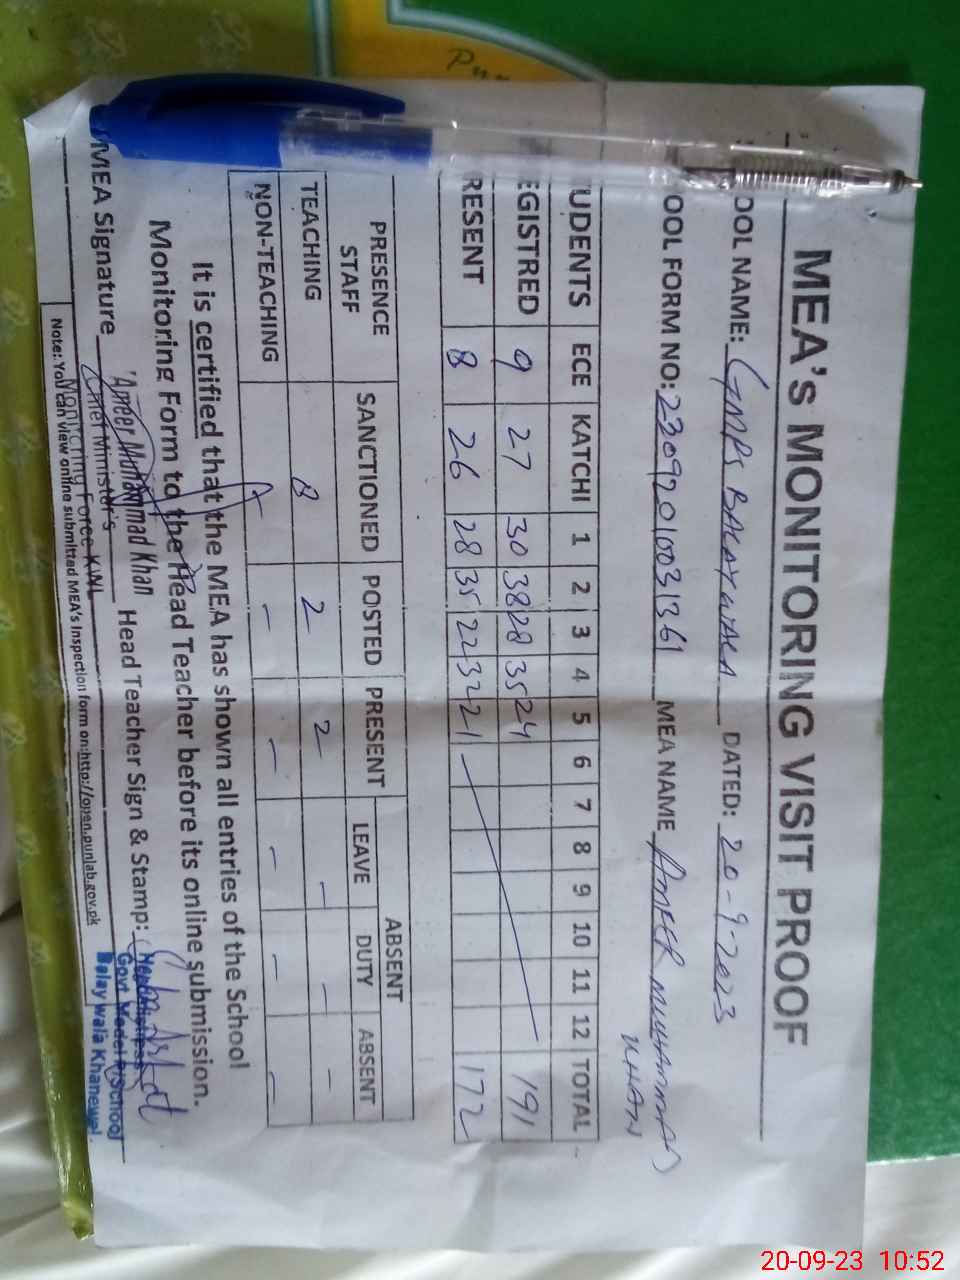 Pun
MEA's MONITORING VISIT PROOF
OOL NAME: GMPS BALAYWALA DATED: 20-9-2023
OOL FORM NO: 2309201003 1361 MEA NAME AMEER MUHAMMAD
KHAN
TUDENTS ECE KATCHI 1 2 3 4 5 6 7 8 9 10 11 12 TOTAL
EGISTRED 9 27 30 38 28 35 24 191
RESENT 8 26 28 35 22 32 21 172
PRESENCE STAFF SANCTIONED POSTED PRESENT ABSENT
LEAVE DUTY ABSENT
TEACHING 8 2 2 - - -
NON-TEACHING - - - - -
It is certified that the MEA has shown all entries of the School
Monitoring Form to the Head Teacher before its online submission.
MEA Signature Head Teacher Sign & Stamp:
Ameer Muhammad Khan
Chief Minister's
Monitoring Force KWL
Headmistress
Govt. Model P/School
Balay wala Khanewal.
Note: You can view online submitted MEA's Inspection form on:http://open.punjab.gov.pk
20-09-23 10:52